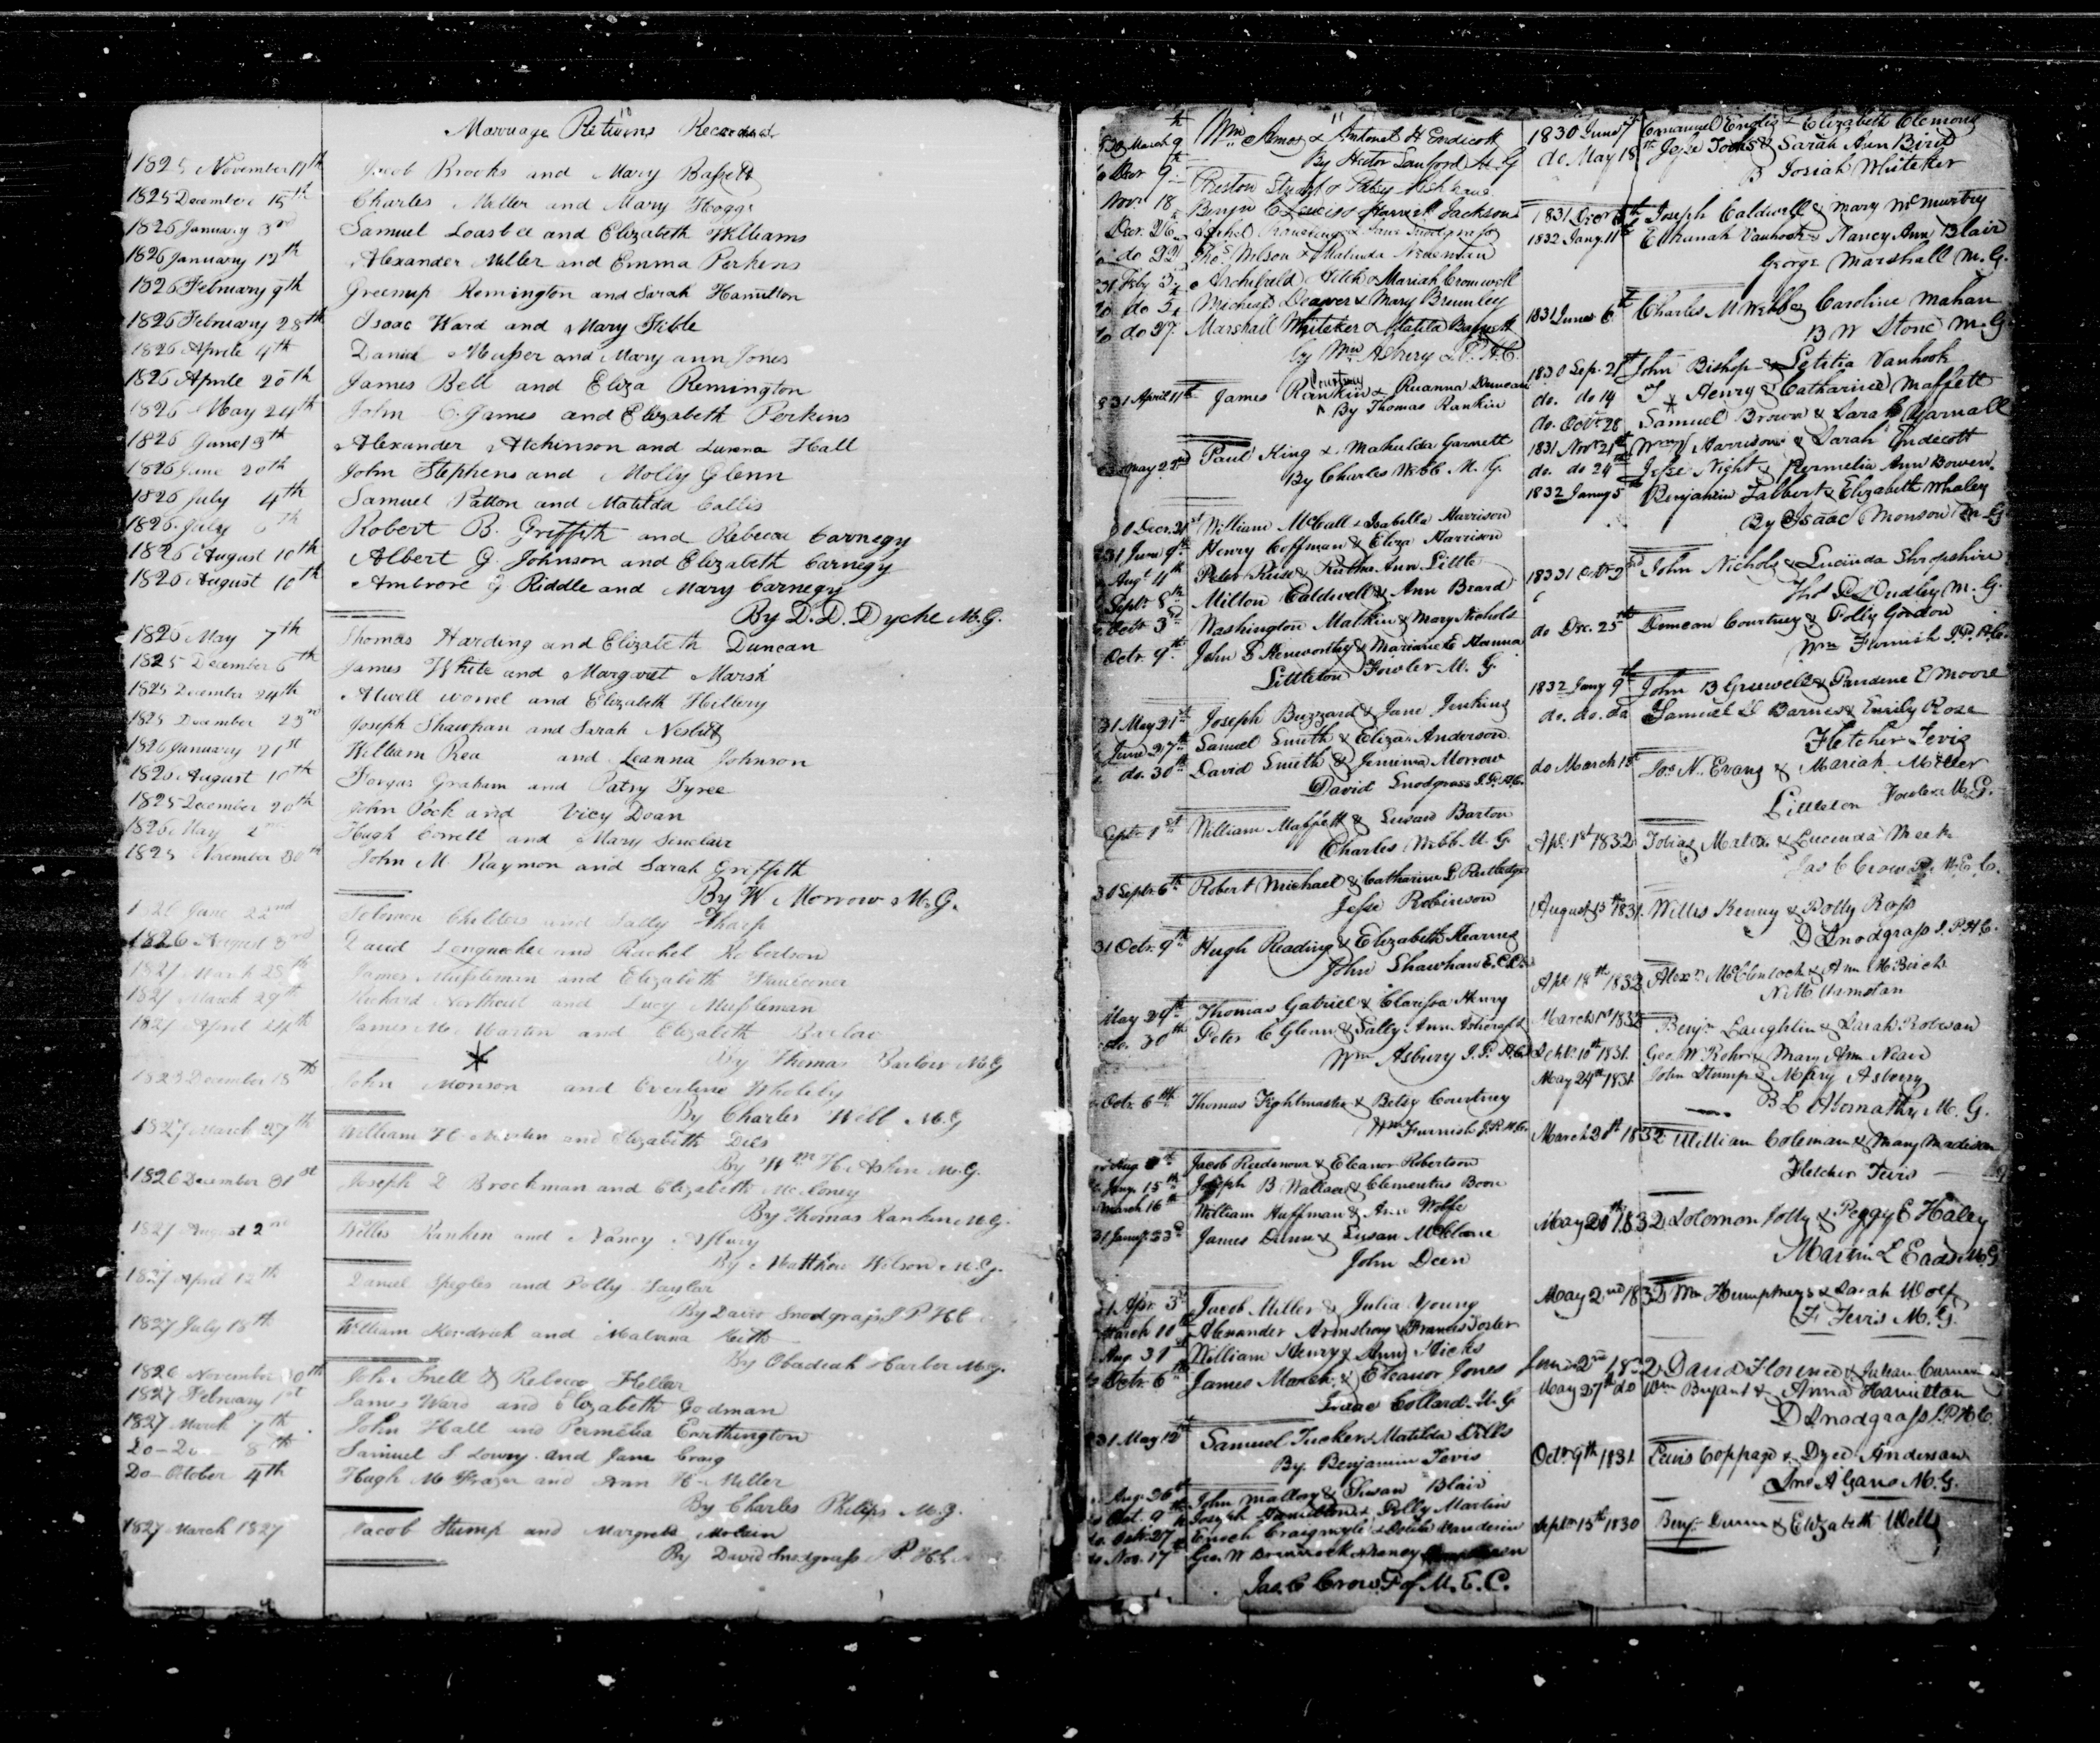 Marriage Returns Recorded
1825 November 17th Jacob Brooks and Mary Bassett
1825 December 15th Charles Miller and Mary Hoggs
1826 January 3rd Samuel Loasbee and Elizabeth Williams
1826 January 12th Alexander Miller and Emma Perkens
1826 February 9th Greenup Remington and Sarah Hamilton
1826 February 28th Isaac Ward and Mary Kibble
1826 Aprile 4th Daniel Musser and Mary ann Jones
1826 Aprile 20th James Bell and Eliza Remington
1826 May 24th John C. James and Elizabeth Perkins
1826 June 13th Alexander Atchinson and Lurena Hall
1826 June 20th John Stephens and Molly Glenn
1826 July 4th Samuel Patton and Matilda Callis
1826 July 6th Robert B. Griffith and Rebecca Carnegy
1826 August 10th Albert G. Johnson and Elizabeth Carnegy
1826 August 10th Ambrose G Riddle and Mary Carnegy
By D. D. Dyche M. G.
1826 May 7th Thomas Harding and Elizabeth Duncan
1825 December 6th James White and Margaret Marsh
1825 December 24th Atwell worrel and Elizabeth Hillery
1825 December 23rd Joseph Shawhan and Sarah Nesbitt
1826 January 21st William Rea and Leanna Johnson
1826 August 10th Fergus Graham and Patsy Tyree
1825 December 20th John Pock and Vicy Doan
1826 May 2nd Hugh Correll and Mary Sinclair
1825 November 30th John M. Raymon and Sarah Griffith
By W Morrow M. G.
1826 June 22nd Solomon Childers and Sally Tharp
1826 August 3rd David Longnecker and Rachel Robertson
1827 March 28th James Mussleman and Elizabeth Fauconer
1827 March 29th Richard Northcut and Lucy Mussleman
1827 April 24th James Mc Martin and Elizabeth Barlow
By Thomas Barlow M. G
1823 December 18th John Monson and Everline Wholely
By Charles Webb M. G
1827 March 27th William H. Martin and Elizabeth Dils
By Wm H. Askin M. G.
1826 December 31st Joseph D Brockman and Elizabeth McLoney
By Thomas Rankin M. G.
1827 August 2nd Willis Rankin and Nancy Asbury
By Matthew Wilson M. G.
1827 April 12th Daniel Spegles and Polly Taylor
By David Snodgrass J P H C
1827 July 18th William Kendrick and Malvina Keith
By Obadiah Harber M. G.
1826 November 30th John Snell & Rebecca Heller
1827 February 1st James Ward and Elizabeth Godman
1827 March 7th John Hall and Permelia Earthington
Do-Do 8th Samuel S Lowry and Jane Craig
Do-October 4th Hugh M Frazer and Ann H. Miller
By Charles Philips M. G.
1827 March 1827 Jacob Stump and Margreta
By David Snodgrass J P. H C
March 9th Wm Amos & Antonet H Endicott
By Hector Sanford M. G
9th Preston & Patsy
Novr 18 Benjn C Lewis & Harriet Jackson
Decr. 26
do 22 Thos. Wilson & Malinda
31 Feby 3 Archibald & Mariah Cromwell
do do 5 Micheal Deaver & Mary Brumley
do do 27 Marshall Whiteker & Matilda Barnett
by Wm Asbury J. P. H. C.
831 April 11th James Courtney Rankin & Rueanna Duncan
By Thomas Rankin
May 22nd Paul King & Mahulda Garnett
By Charles Webb M. G.
30 Decr. 21st William McCall & Isabella Harrison
31 June 9th Henry Coffman & Eliza Harrison
Augt 4th Peter Ruse & Rutha Ann Little
Septr 8th Milton Caldwell & Ann Beard
Octr 3rd Washington Malkin & Mary Nichols
Octr. 9th John S Kenworthy & Marianete Hanna
Littleton Fowler M. G.
31 May 31st Joseph Buzzard & Jane Jenkins
June 27th Samuel Smith & Eliza Anderson
do. 30th David Smith & Jemima Morrow
David Snodgrass J. P. H. C.
Septr 1st William Maffett & Susan Barton
Charles Webb M. G.
30 Septr 6th Robert Michael & Catharine L Rutledge
Jesse Robinson
31 Octr. 9th Hugh Reading & Elizabeth Kearns
John Shawhan E. C. C.
May 29th Thomas Gabriel & Clarissa Henry
do. 30th Peter C Glenn & Sally Ann Ashcraft
Wm Asbury J. P. H C
Octr. 6th Thomas Fightmaster & Betsy Courtney
Wm Furnish J. P. H C.
Aug. 8th Jacob Ridenour & Eleanor Robertson
Jany. 15th Joseph B Wallace & Clementus Boon
March 16th William Huffman & Ann Wolfe
31 Jany. 23rd James Dunn & Susan McClure
John Deen
Apr. 3rd Jacob Miller & Julia Young
March 10th Alexander Armstrong & Frances Foster
Aug. 31st William Henry & Ann Hicks
Octr. 6th James Marsh & Eleanor Jones
Isaac Collard M. G
831 May 12th Samuel Tucker & Matilda Dills
By Benjamin Tevis
Aug. 26th John Mallory & Susan Blair
Oct. 9th Joseph Hamilton & Polly Martin
do. Octr. 27 Enoch Craigmyle & Vanderin
do Nov. 17th Geo. W Brannock & Nancy
Jas. C Crow P of M. E. C.
1830 June 7th Emanuel Endis & Elizabeth Clemons
do May 18th Jesse Tooks & Sarah Ann Bird
B Josiah Whiteker
1831 Decr 8th Joseph Caldwell & Mary McMurtry
1832 Jany. 11th Elkanah Vanhook & Nancy Ann Blair
George Marshall M. G.
1831 June 6th Charles M Webb & Caroline Mahan
B W Stone M. G.
1830 Sep. 21st John Bishop & Letitia Vanhook
do. do 14 J Henry & Catharine Maffett
do. Octr. 28 Samuel Brown & Sarah Yarnall
1831 Novr 21st Wm Harrison & Sarah Endicott
do. do 24th Jesse Night & Permelia Ann Bowen.
1832 Jany 5th Benjamin Talbert & Elizabeth Whaley
By Isaac Monson M. G
18331 Octr 2nd John Nichols & Lucinda Shropshire
Thos P Dudley M. G.
do Dec. 25th Duncan Courtney & Polly Gordon
Wm Furnish J. P. H. C.
1832 Jany 9th John B Gruwell & Pandine E Moore
do. do. do Samuel G Barnes & Emily Rose
Fletcher Tevis
do March 15th Jas N. Evans & Mariah Miller
Littleton Fowler M. G.
Apl. 1st 1832 Tobias Martin & Lucinda Meek
Jas C Crow P. M. E. C.
August 13th 1831 Willis Kenny & Polly Bass
D Snodgrass J. P. H C.
Apl. 18th 1832 Alexr. McClintock & Ann McBirch
N. M Urmstan
March 1st 1832 Benjn. Laughlin & Sarah Robison
Septr. 10th 1831. Geo. W Rohrs & Mary Ann Neave
May 24th 1831 John Stump & Mary Asbury
B L Abornathy M. G.
March 20th 1832 William Coleman & Mary Madison
Fletcher Tevis
May 20th 1832 Solomon Jolly & Peggy E Haley
Martin L Eads M. G
May 2nd 1832 Wm Humphreys & Sarah Wolf
F. Tevis M. G.
June 2nd 1832 David Florence & Julian
May 27th do Wm Bryant & Anna Hamilton
D Snodgrass J. P. H C.
Octr 9th 1831 Lewis Coppage & Dyed Anderson
Jno. A Gano M. G.
Septr 15th 1830 Benjn. Dunn & Elizabeth Wells